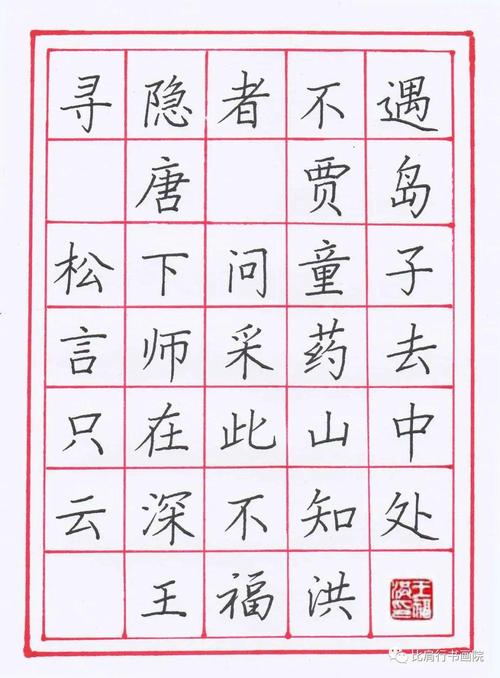 寻隐者不遇
唐 贾岛
松下问童子
言师采药去
只在此山中
云深不知处
王福洪
王福洪印
比肩行书画院